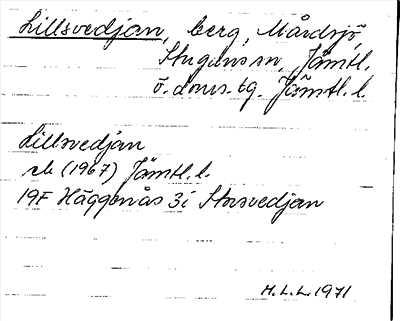 Lillsvedjan, berg, Mårdsjö,
Stuguns sn, Jämtl.
ö. doms. tg. Jämtl. l.
Lillsvedjan
rek (1967) Jämtl. l.
19F Häggenås 3i Storsvedjan
H.L.L. 1971